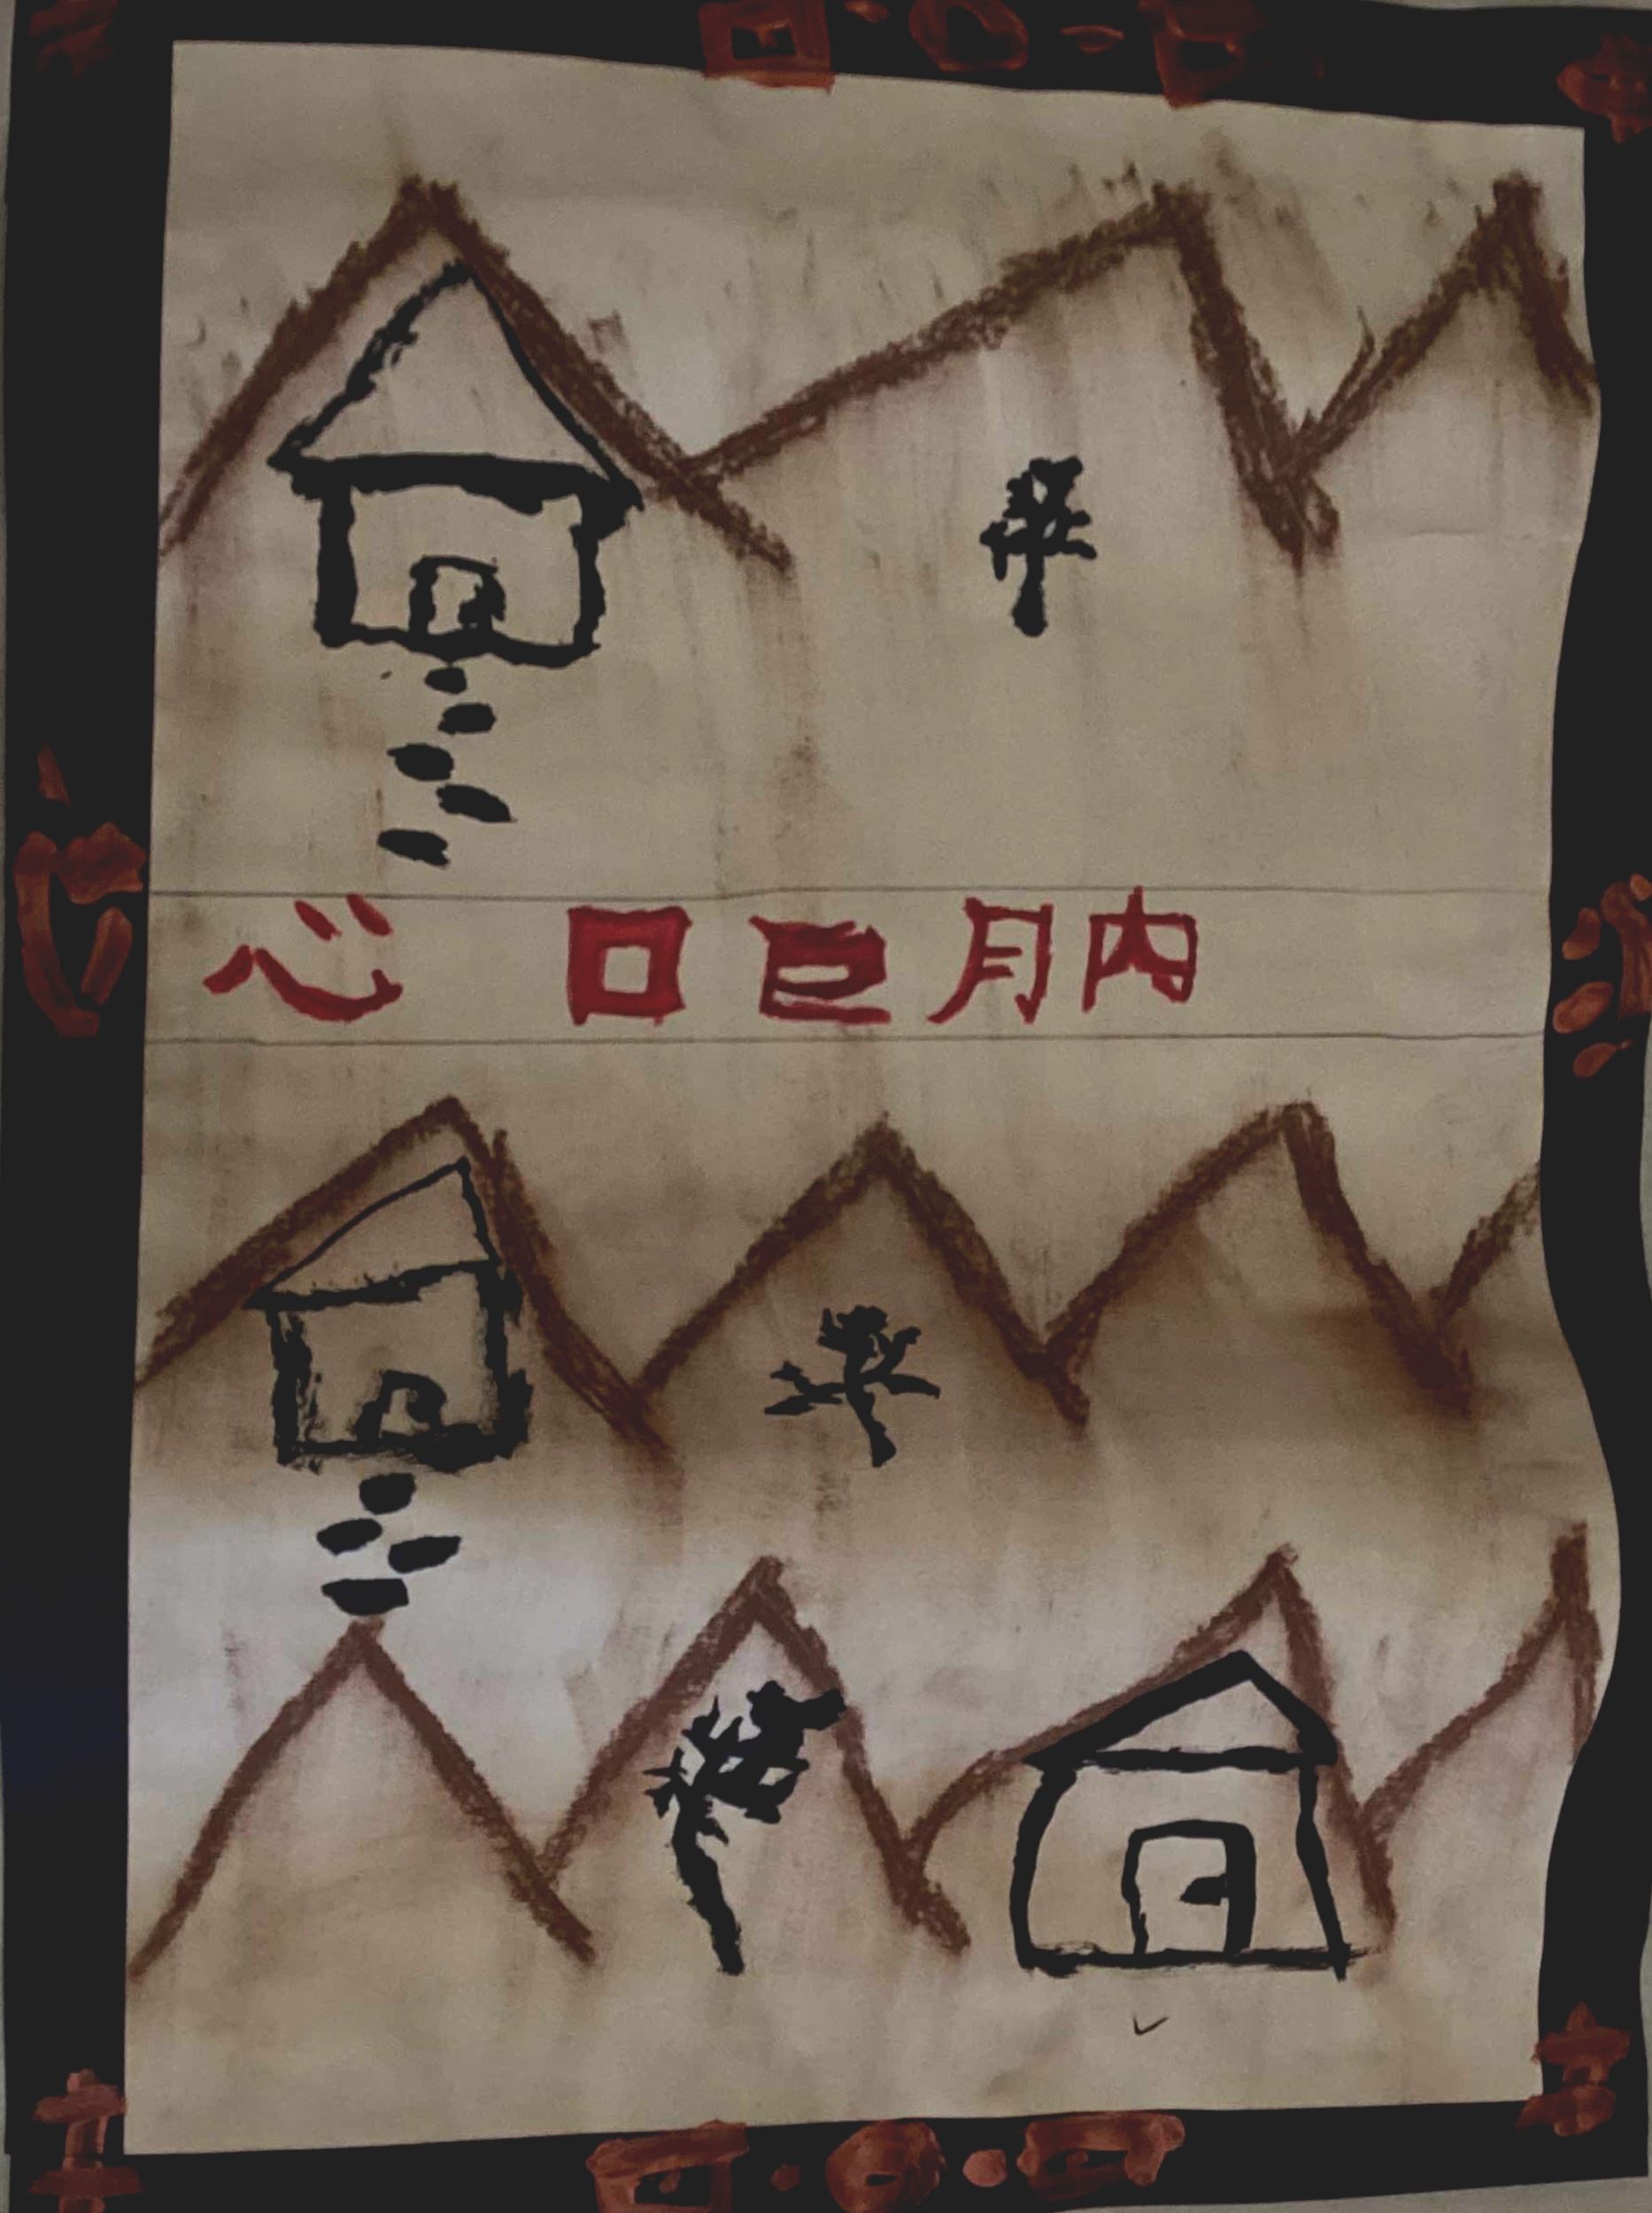 心 口 巳 月 内